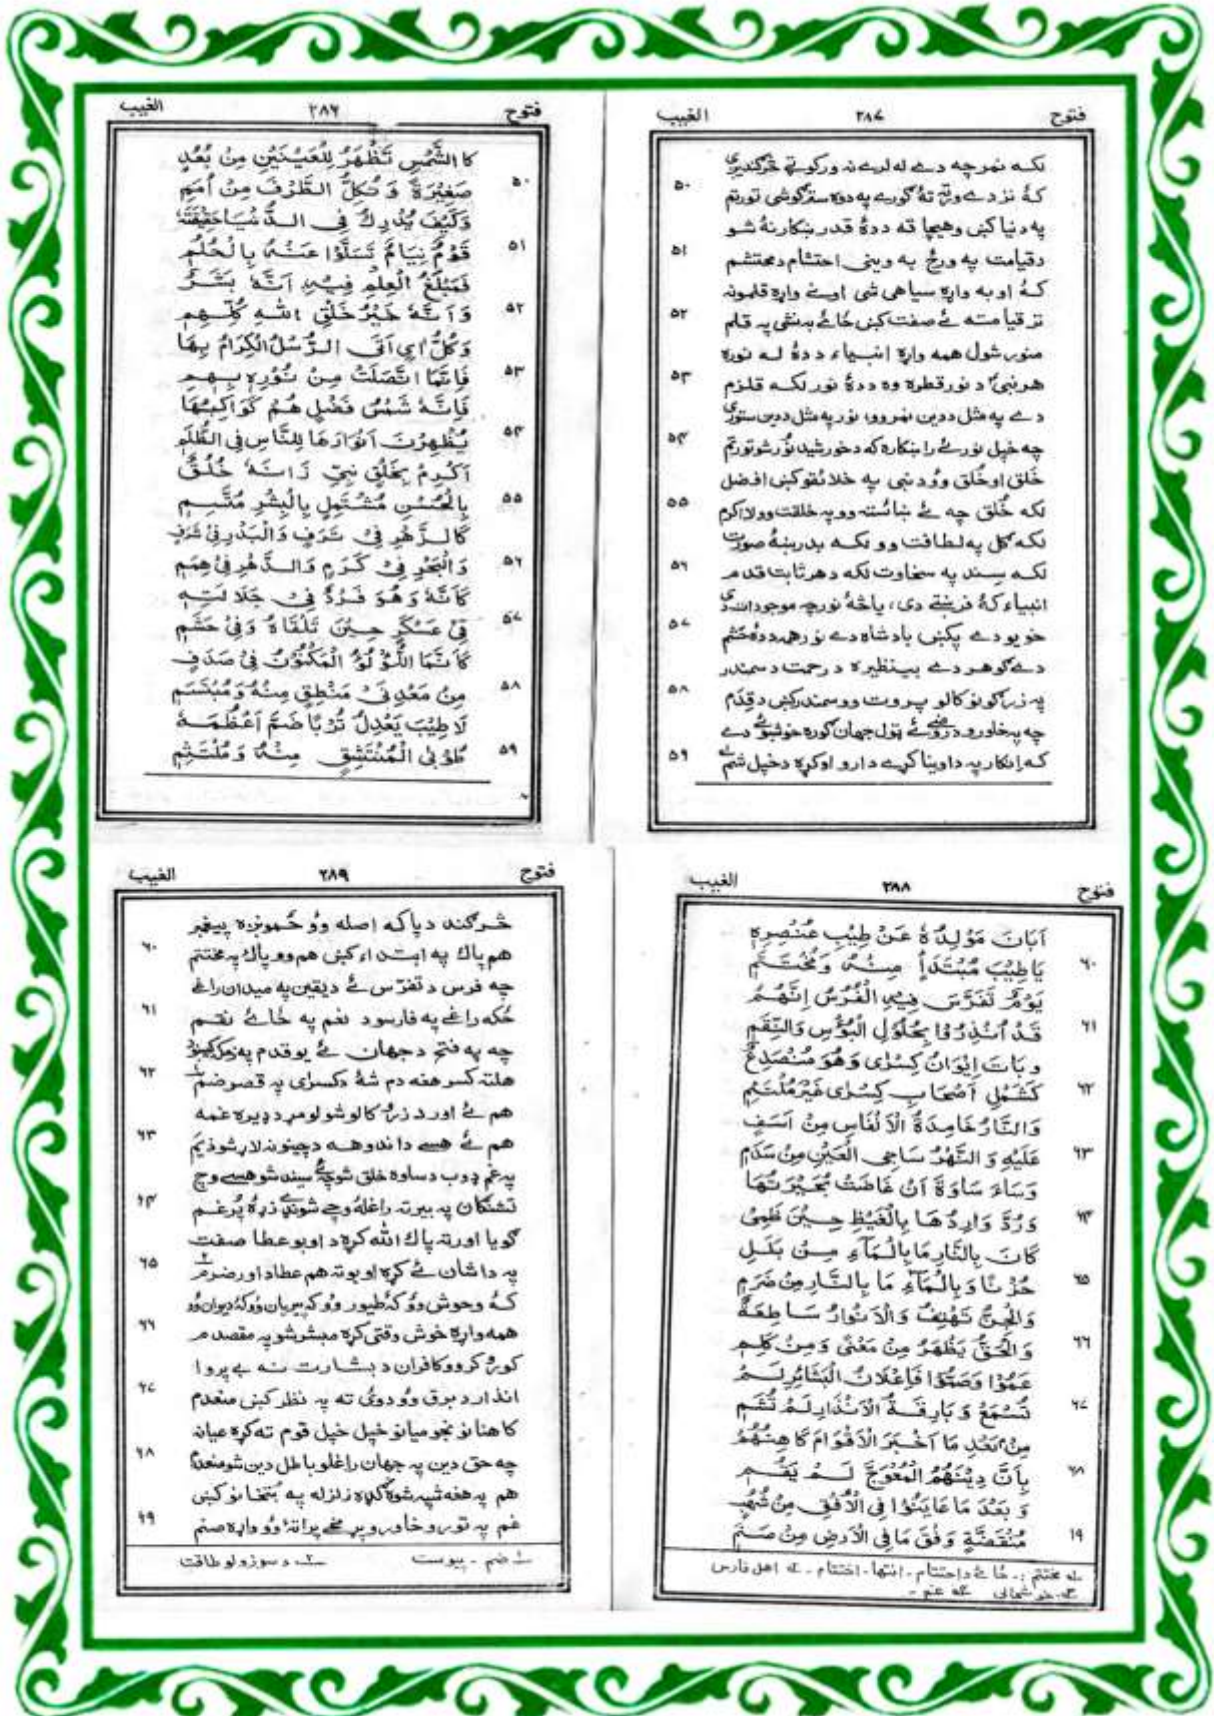 فتوح ٢٨٦ الغيب
كَالشَّمْسِ تَظْهَرُ لِلْعَيْنَيْنِ مِنْ بُعُدٍ
صَغِيْرَةً وَتُكِلُّ الطَّرْفَ مِنْ اُمَمِ ٥٠
وَكَيْفَ يُدْرِكُ فِي الدُّنْيَا حَقِيْقَتَهٗ
قَوْمٌ نِيَامٌ تَسَلَّوْا عَنْهُ بِالْحُلُمِ ٥١
فَمَبْلَغُ الْعِلْمِ فِيْهِ اَنَّهٗ بَشَرٌ
وَاَنَّهٗ خَيْرُ خَلْقِ اللهِ كُلِّهِمِ ٥٢
وَكُلُّ اٰيٍ اَتَى الرُّسُلُ الْكِرَامُ بِهَا
فَاِنَّمَا اتَّصَلَتْ مِنْ نُوْرِهٖ بِهِمِ ٥٣
فَاِنَّهٗ شَمْسُ فَضْلٍ هُمْ كَوَاكِبُهَا
يُظْهِرْنَ اَنْوَارَهَا لِلنَّاسِ فِي الظُّلَمِ ٥٤
اَكْرِمْ بِخَلْقِ نَبِيٍّ زَانَهٗ خُلُقٌ
بِالْحُسْنِ مُشْتَمِلٍ بِالْبِشْرِ مُتَّسِمِ ٥٥
كَالزَّهْرِ فِيْ تَرَفٍ وَالْبَدْرِ فِيْ شَرَفٍ
وَالْبَحْرِ فِيْ كَرَمٍ وَالدَّهْرِ فِيْ هِمَمِ ٥٦
كَاَنَّهٗ وَهُوَ فَرْدٌ فِيْ جَلَالَتِهٖ
فِيْ عَسْكَرٍ حِيْنَ تَلْقَاهُ وَفِيْ حَشَمِ ٥٧
كَاَنَّمَا اللُّؤْلُؤُ الْمَكْنُوْنُ فِيْ صَدَفٍ
مِنْ مَعْدِنَيْ مَنْطِقٍ مِنْهُ وَمُبْتَسَمِ ٥٨
لَا طِيْبَ يَعْدِلُ تُرْبًا ضَمَّ اَعْظُمَهٗ
طُوْبٰى لِمُنْتَشِقٍ مِنْهُ وَمُلْتَثِمِ ٥٩
فتوح ٢٨٧ الغيب
لكه نمر چه دے له لرے نه وركوټے څرګنديږي
كۀ نزدے ورته تۀ ګورے په دوه سترګو شي تورتم ٥٠
په دنيا كښې وهيچا ته ددۀ قدر ښكاره نۀ شو
د قيامت په ورځ به ويني احتشام د محتشم ٥١
كۀ اوبه واړه سياهي شي اونے واړه قلمونه
تر قيامته ئے صفت كښې ځائے به نشي په قلم ٥٢
منور شول همه واړه انبياء ددۀ له نوره
هر نبي د نور قطره وه ددۀ نور لكه قلزم ٥٣
دے په مثل ددين نمر وو، نور په مثل ددين ستوري
چه خپل نور ئے را ښكاره كه د خورشيد نور شو تورتم ٥٤
خَلق او خُلق وو د نبي په خلائقو كښې افضل
لكه خُلق چه ئے ښائسته وو په خلقت وو لا اكرم ٥٥
لكه ګل په لطافت وو لكه بدر ښۀ صورت
لكه سيند په سخاوت لكه دهر ثابت قدم ٥٦
انبياء كۀ فرښتے دي، يا څۀ نور چه موجودات دي
خو يو دے پكښې بادشاه دے نور همه ددۀ حشم ٥٧
دے ګوهر دے بے نظيره د رحمت د سمندر
په زرګونو كالو پروت وو سمندر كښې د قِدَم ٥٨
چه په خاورو د روضے ئے ټول جهان ګوره خوشبوئے دے
كه انكار په دا وينا كړے دارو اوكړه د خپل شم ٥٩
فتوح ٢٨٨ الغيب
اَبَانَ مَوْلِدُهٗ عَنْ طِيْبِ عُنْصُرِهٖ
يَا طِيْبَ مُبْتَدَاٍ مِنْهُ وَمُخْتَتَمِ ٦٠
يَوْمٌ تَفَرَّسَ فِيْهِ الْفُرْسُ اِنَّهُمُ
قَدْ اُنْذِرُوْا بِحُلُوْلِ الْبُؤْسِ وَالنِّقَمِ ٦١
وَبَاتَ اِيْوَانُ كِسْرٰى وَهُوَ مُنْصَدِعٌ
كَشَمْلِ اَصْحَابِ كِسْرٰى غَيْرَ مُلْتَئِمِ ٦٢
وَالنَّارُ خَامِدَةُ الْاَنْفَاسِ مِنْ اَسَفٍ
عَلَيْهِ وَالنَّهْرُ سَاهِي الْعَيْنِ مِنْ سَدَمِ ٦٣
وَسَاءَ سَاوَةَ اَنْ غَاضَتْ بُحَيْرَتُهَا
وَرُدَّ وَارِدُهَا بِالْغَيْظِ حِيْنَ ظَمِيْ ٦٤
كَاَنَّ بِالنَّارِ مَا بِالْمَآءِ مِنْ بَلَلٍ
حُزْنًا وَبِالْمَآءِ مَا بِالنَّارِ مِنْ ضَرَمِ ٦٥
وَالْجِنُّ تَهْتِفُ وَالْاَنْوَارُ سَاطِعَةٌ
وَالْحَقُّ يَظْهَرُ مِنْ مَعْنًى وَمِنْ كَلِمِ ٦٦
عَمُوْا وَصَمُّوْا فَاِعْلَانُ الْبَشَائِرِ لَمْ
تُسْمَعْ وَبَارِقَةُ الْاِنْذَارِ لَمْ تُشَمِ ٦٧
مِنْ بَعْدِ مَا اَخْبَرَ الْاَقْوَامَ كَاهِنُهُمْ
بِاَنَّ دِيْنَهُمُ الْمُعْوَجَّ لَمْ يَقُمِ ٦٨
وَبَعْدَ مَا عَايَنُوْا فِي الْاُفُقِ مِنْ شُهُبٍ
مُنْقَضَّةٍ وَفْقَ مَا فِي الْاَرْضِ مِنْ صَنَمِ ٦٩
له مختتم :- ځائے د اختتام - انتها - اختتام - له اهل فارس
خوشحالي غم -
فتوح ٢٨٩ الغيب
څرګند دپاكه اصله وو ځمونږه پيغمبر
هم پاك په ابتداء كښې هم وو پاك په مختتم ٦٠
چه فرس د تفرّس ئے ديقين په ميدان راغے
ځكه راغے په فارس د نغم په ځائے نقم ٦١
چه په فتح د جهان ئے يو قدم په كيښو
هلته كسر هغه دم شۀ د كسرٰى په قصر ضم ٦٢
هم ئے اور د زرو كالو شو لو مړ د ډيره غمه
هم ئے هسے داندوهه د چينو نه لار شو ذيم ٦٣
په غم ډوب د ساوه خلق شو چه سيند شو هسے وچ
تشنګان په بيرته راغلۀ وچے شونډے زړه پُر غم ٦٤
ګويا اور ته پاك الله كړه د اوبو عطا صفت
په دا شان ئے كړه اوبو ته هم عطا د اور ضرم ٦٥
كۀ وحوش وو كۀ طيور وو كه پيريان وو كۀ ديوان وو
همه واړه خوش وقتي كړه مبشر شو په مقصد م ٦٦
كوږ كړو وو كافران د بشارت نه بے پروا
انذار د برق وو دوئ ته په نظر كښې منعدم ٦٧
كاهنانو نجوميانو خپل خپل قوم ته كړه عيانه
چه حق دين په جهان راغلو باطل دين شو منعدم ٦٨
هم په هغه شپه شوه ګډه زلزله په بُتخانو كښې
غم په تورو خاورو پړمخے پراتۀ وو واړه صنم ٦٩
ضم - پيوست ٢- د سوزولو طاقت